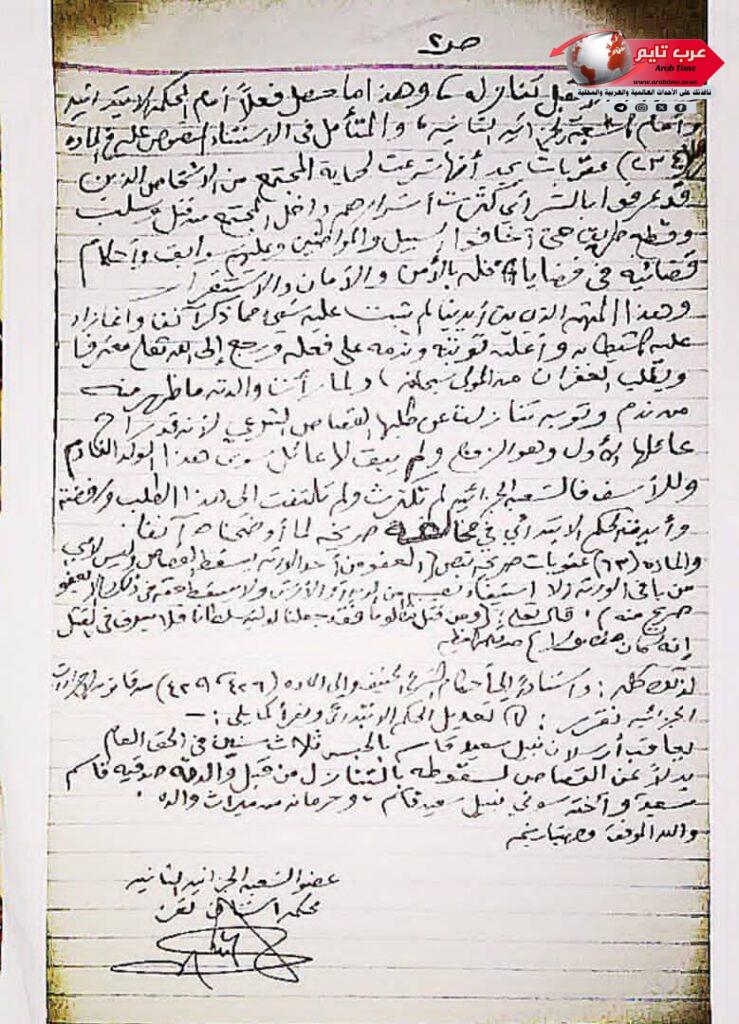 ص٢
عرب تايم
Arab Time
www.arabtime.news
نافذتك على الأحداث العالمية والعربية والمحلية
يقبل تنازله، وهذا ما حصل فعلاً أمام المحكمة الابتدائية
وأمام الشعبة الجزائية الثانية، والمتأمل في الاستثناء المنصوص عليه في الماده
(٢٣٤) عقوبات يجد أنها شرعت لحماية المجتمع من الأشخاص الذين
قد عرفوا بالشر أي كثرت أشرارهم داخل المجتمع من قتل وسلب
وقطع طريق حتى أخافوا السبيل والمواطنين وعليهم سوابق وأحكام
قضائيه في قضايا مخله بالأمن والأمان والاستقرار
وهذا المتهم الذي بين أيدينا لم يثبت عليه شيئ مما ذكر آنفا وإنما زاد
عليه الشيطان وأعلن توبته وندمه على فعله ورجع إلى الله تعالى معترفا
ويطلب الغفران من المولى سبحانه، ولما رأت والدته ما ظهر منه
من ندم وتوبه تنازلت عن طلبها القصاص الشرعي لأنه قد راح
عائلها الأول وهو الزوج ولم يبق لها عائل سوى هذا الولد القادم
وللأسف فالشعبه الجزائيه لم تكترث ولم تلتفت الى هذا الطلب ورفضته
وأيدت الحكم الابتدائي في مخالفة صريحه لما أوضحناه آنفا
والماده (٦٣) عقوبات صريحه بنص (العفو من أحد الورثه يسقط القصاص وليس لأي
من باقي الورثه إلا استيفاء نصيبه من الديه أو الأرش ولا يسقط حقه في ذلك إلا بعفو
صريح منه)، قال تعالى: {ومن قتل مظلوما فقد جعلنا لوليه سلطانا فلا يسرف في القتل
إنه كان منصورا} صدق الله العظيم
لذلك كله: واستناداً إلى أحكام الشرع الحنيف وإلى الماده (٤٢٦، ٤٢٩) من قانون الإجراءات
الجزائيه نقرر: (١) تعديل الحكم الابتدائي ونقرأ كما يلي:-
يعاقب أرسلان نبيل سعيد قاسم بالحبس ثلاث سنين في الحق العام
بدلاً عن القصاص لسقوطه بالتنازل من قبل والدته صدقيه قاسم
سعيد وأخته نبيل سعيد قاسم، وحرمانه من ميراث والده.
والله الموفق
عضو الشعبه الجزائيه الثانيه
محكمه استئناف